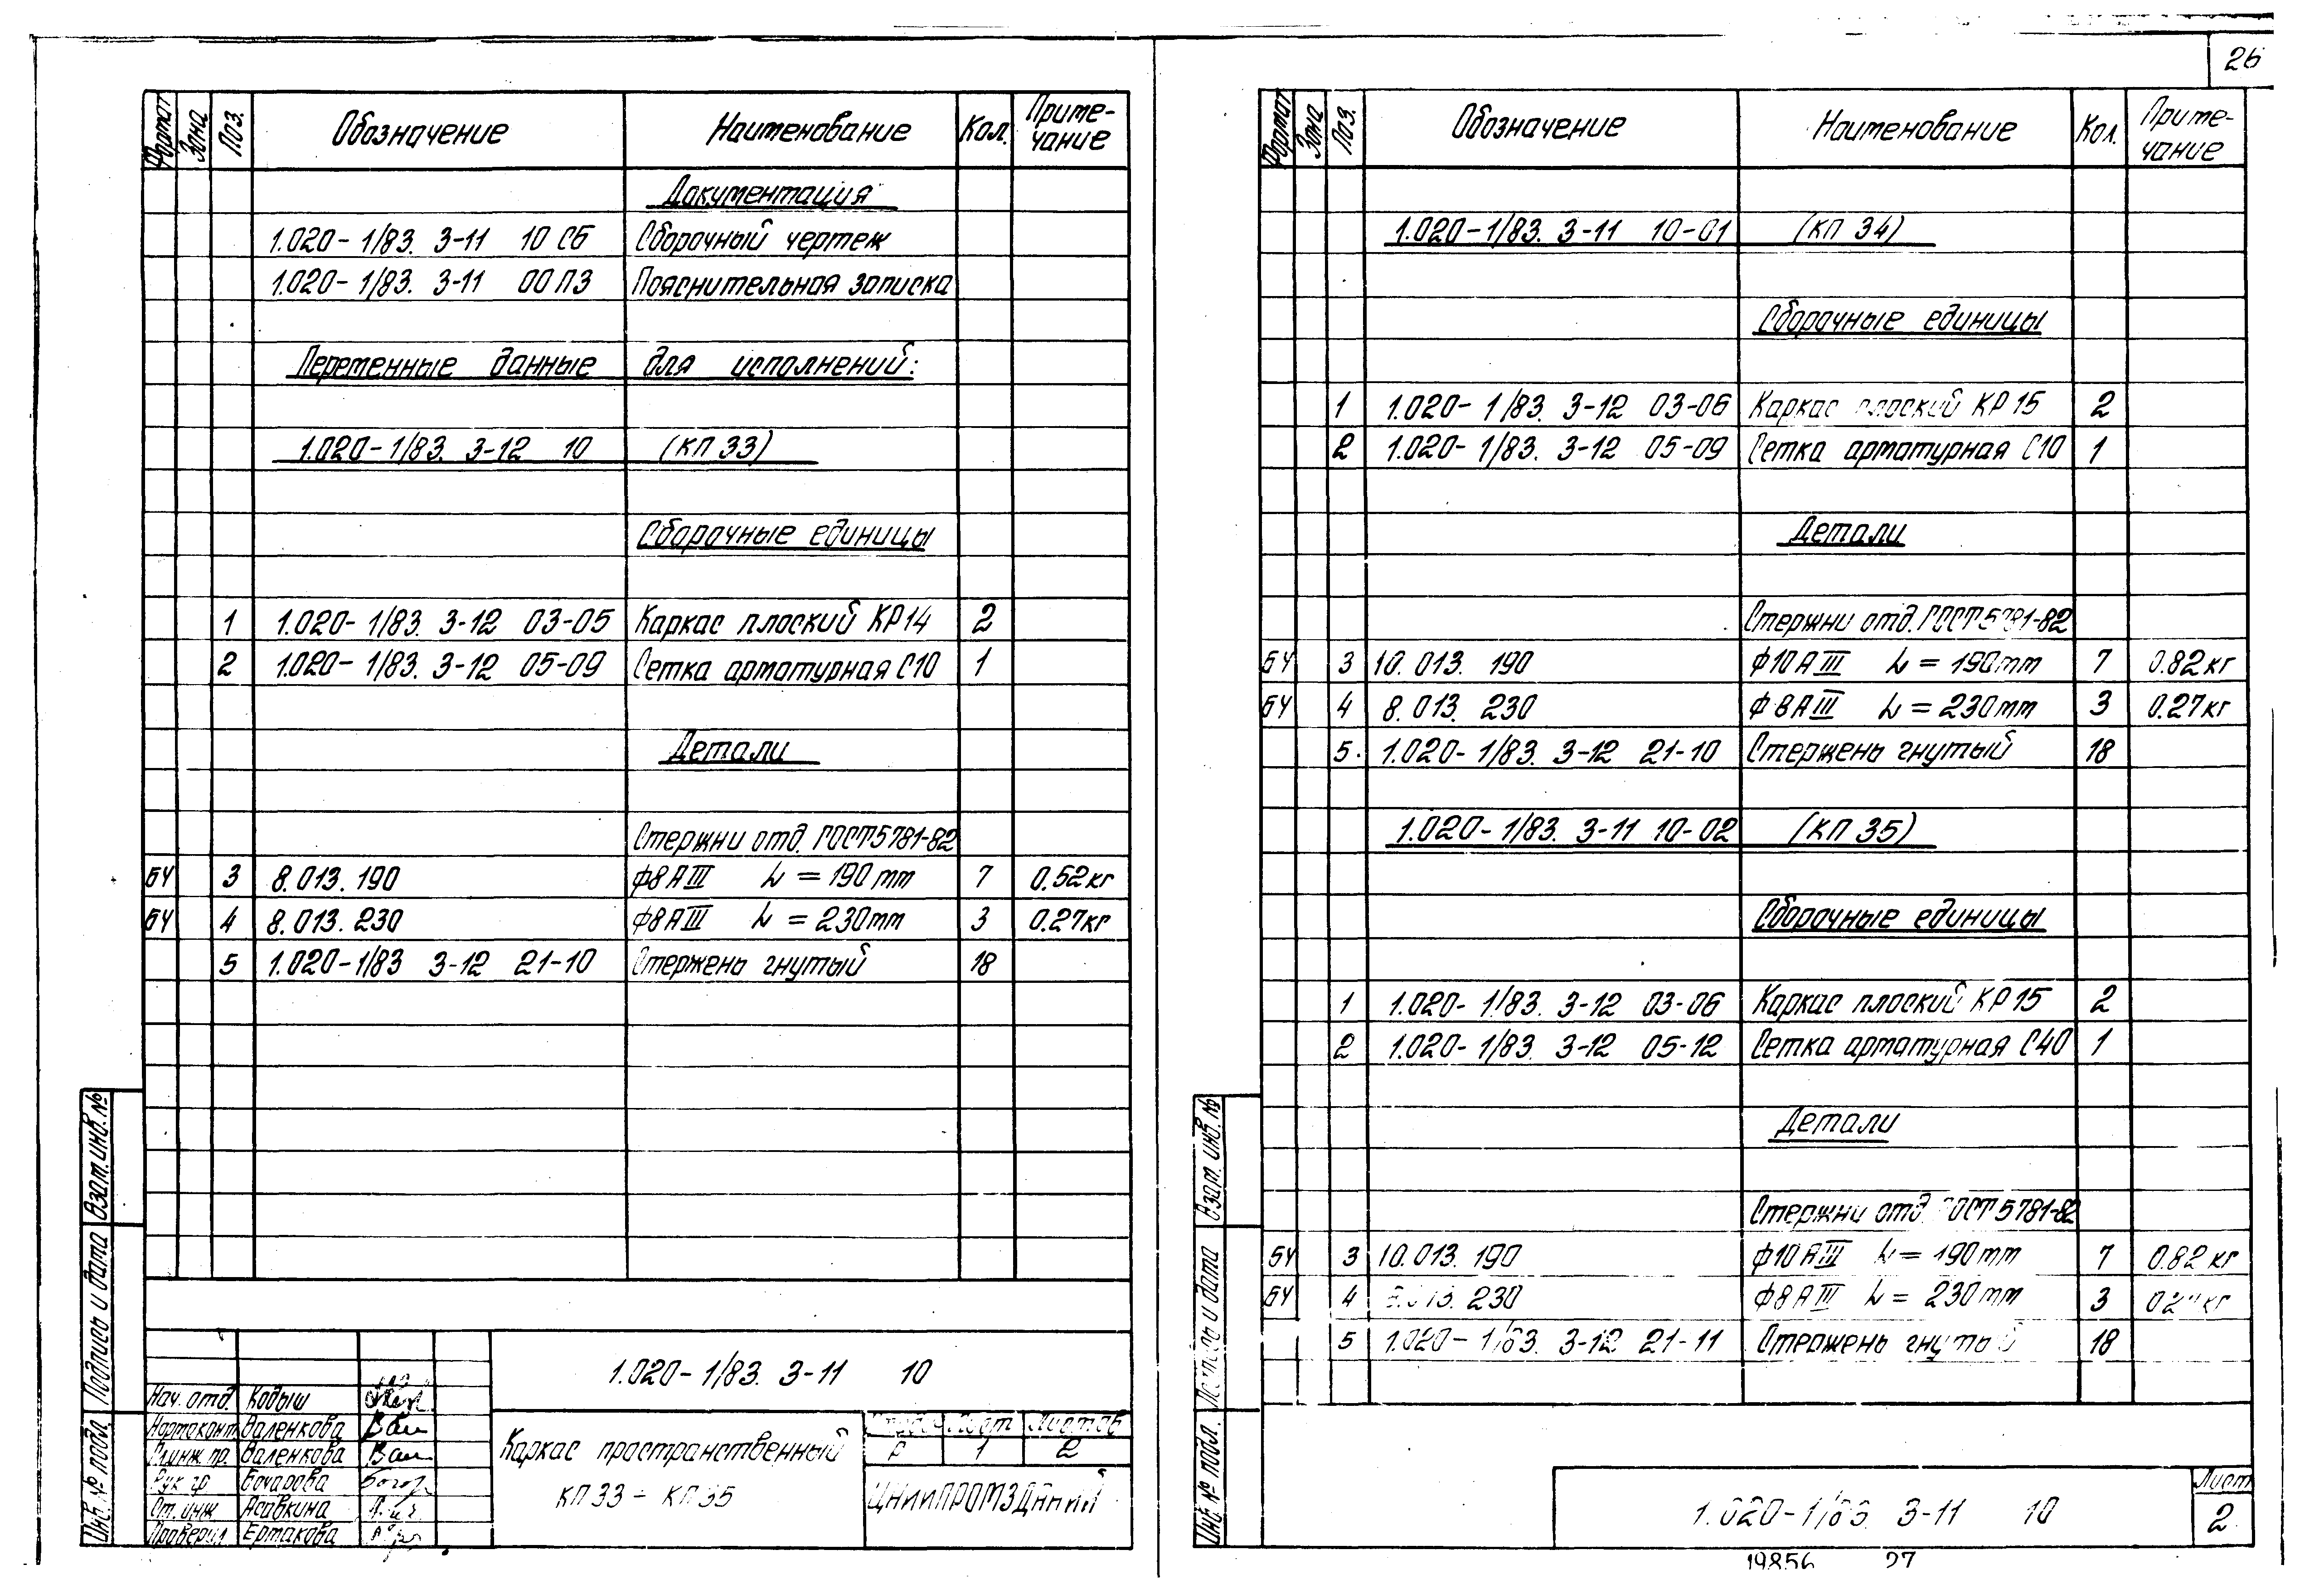 26
Формат Зона Поз. Обозначение Наименование Кол. Приме-
чание
Документация
1.020-1/83. 3-11 10 СБ Сборочный чертеж
1.020-1/83. 3-11 00 ПЗ Пояснительная записка
Переменные данные для исполнений:
1.020-1/83. 3-12 10 (КП 33)
Сборочные единицы
1 1.020-1/83. 3-12 03-05 Каркас плоский КР14 2
2 1.020-1/83. 3-12 05-09 Сетка арматурная С10 1
Детали
Стержни отд. ГОСТ 5781-82
БЧ 3 8.013.190 Ф8АIII L=190mm 7 0.52кг
БЧ 4 8.013.230 Ф8АIII L=230mm 3 0.27кг
5 1.020-1/83 3-12 21-10 Стержень гнутый 18
Взам.инв.№
Подпись и дата
Инв.№ подл.
1.020-1/83. 3-11 10
Нач.отд. Кодыш
Нормоконт Валенкова
Гл.инж.пр. Валенкова
Рук.гр Бочарова
Ст.инж Асавкина
Проверил Ермакова
Каркас пространственный
КП33 - КП35
Стадия Лист Листов
Р 1 2
ЦНИИПРОМЗДАНИЙ
Формат Зона Поз. Обозначение Наименование Кол. Приме-
чание
1.020-1/83. 3-11 10-01 (КП 34)
Сборочные единицы
1 1.020-1/83. 3-12 03-06 Каркас плоский КР15 2
2 1.020-1/83. 3-12 05-09 Сетка арматурная С10 1
Детали
Стержни отд. ГОСТ 5781-82
БЧ 3 10.013.190 Ф10АIII L=190mm 7 0.82кг
БЧ 4 8.013.230 Ф8АIII L=230mm 3 0.27кг
5 1.020-1/83. 3-12 21-10 Стержень гнутый 18
1.020-1/83. 3-11 10-02 (КП 35)
Сборочные единицы
1 1.020-1/83. 3-12 03-06 Каркас плоский КР15 2
2 1.020-1/83. 3-12 05-12 Сетка арматурная С40 1
Детали
Стержни отд. ГОСТ 5781-82
БЧ 3 10.013.190 Ф10АIII L=190mm 7 0.82кг
БЧ 4 8.013.230 Ф8АIII L=230mm 3 0.27кг
5 1.020-1/83. 3-12 21-11 Стержень гнутый 18
Взам.инв.№
Подпись и дата
Инв.№ подл.
1.020-1/83. 3-11 10
Лист
2
19856 27